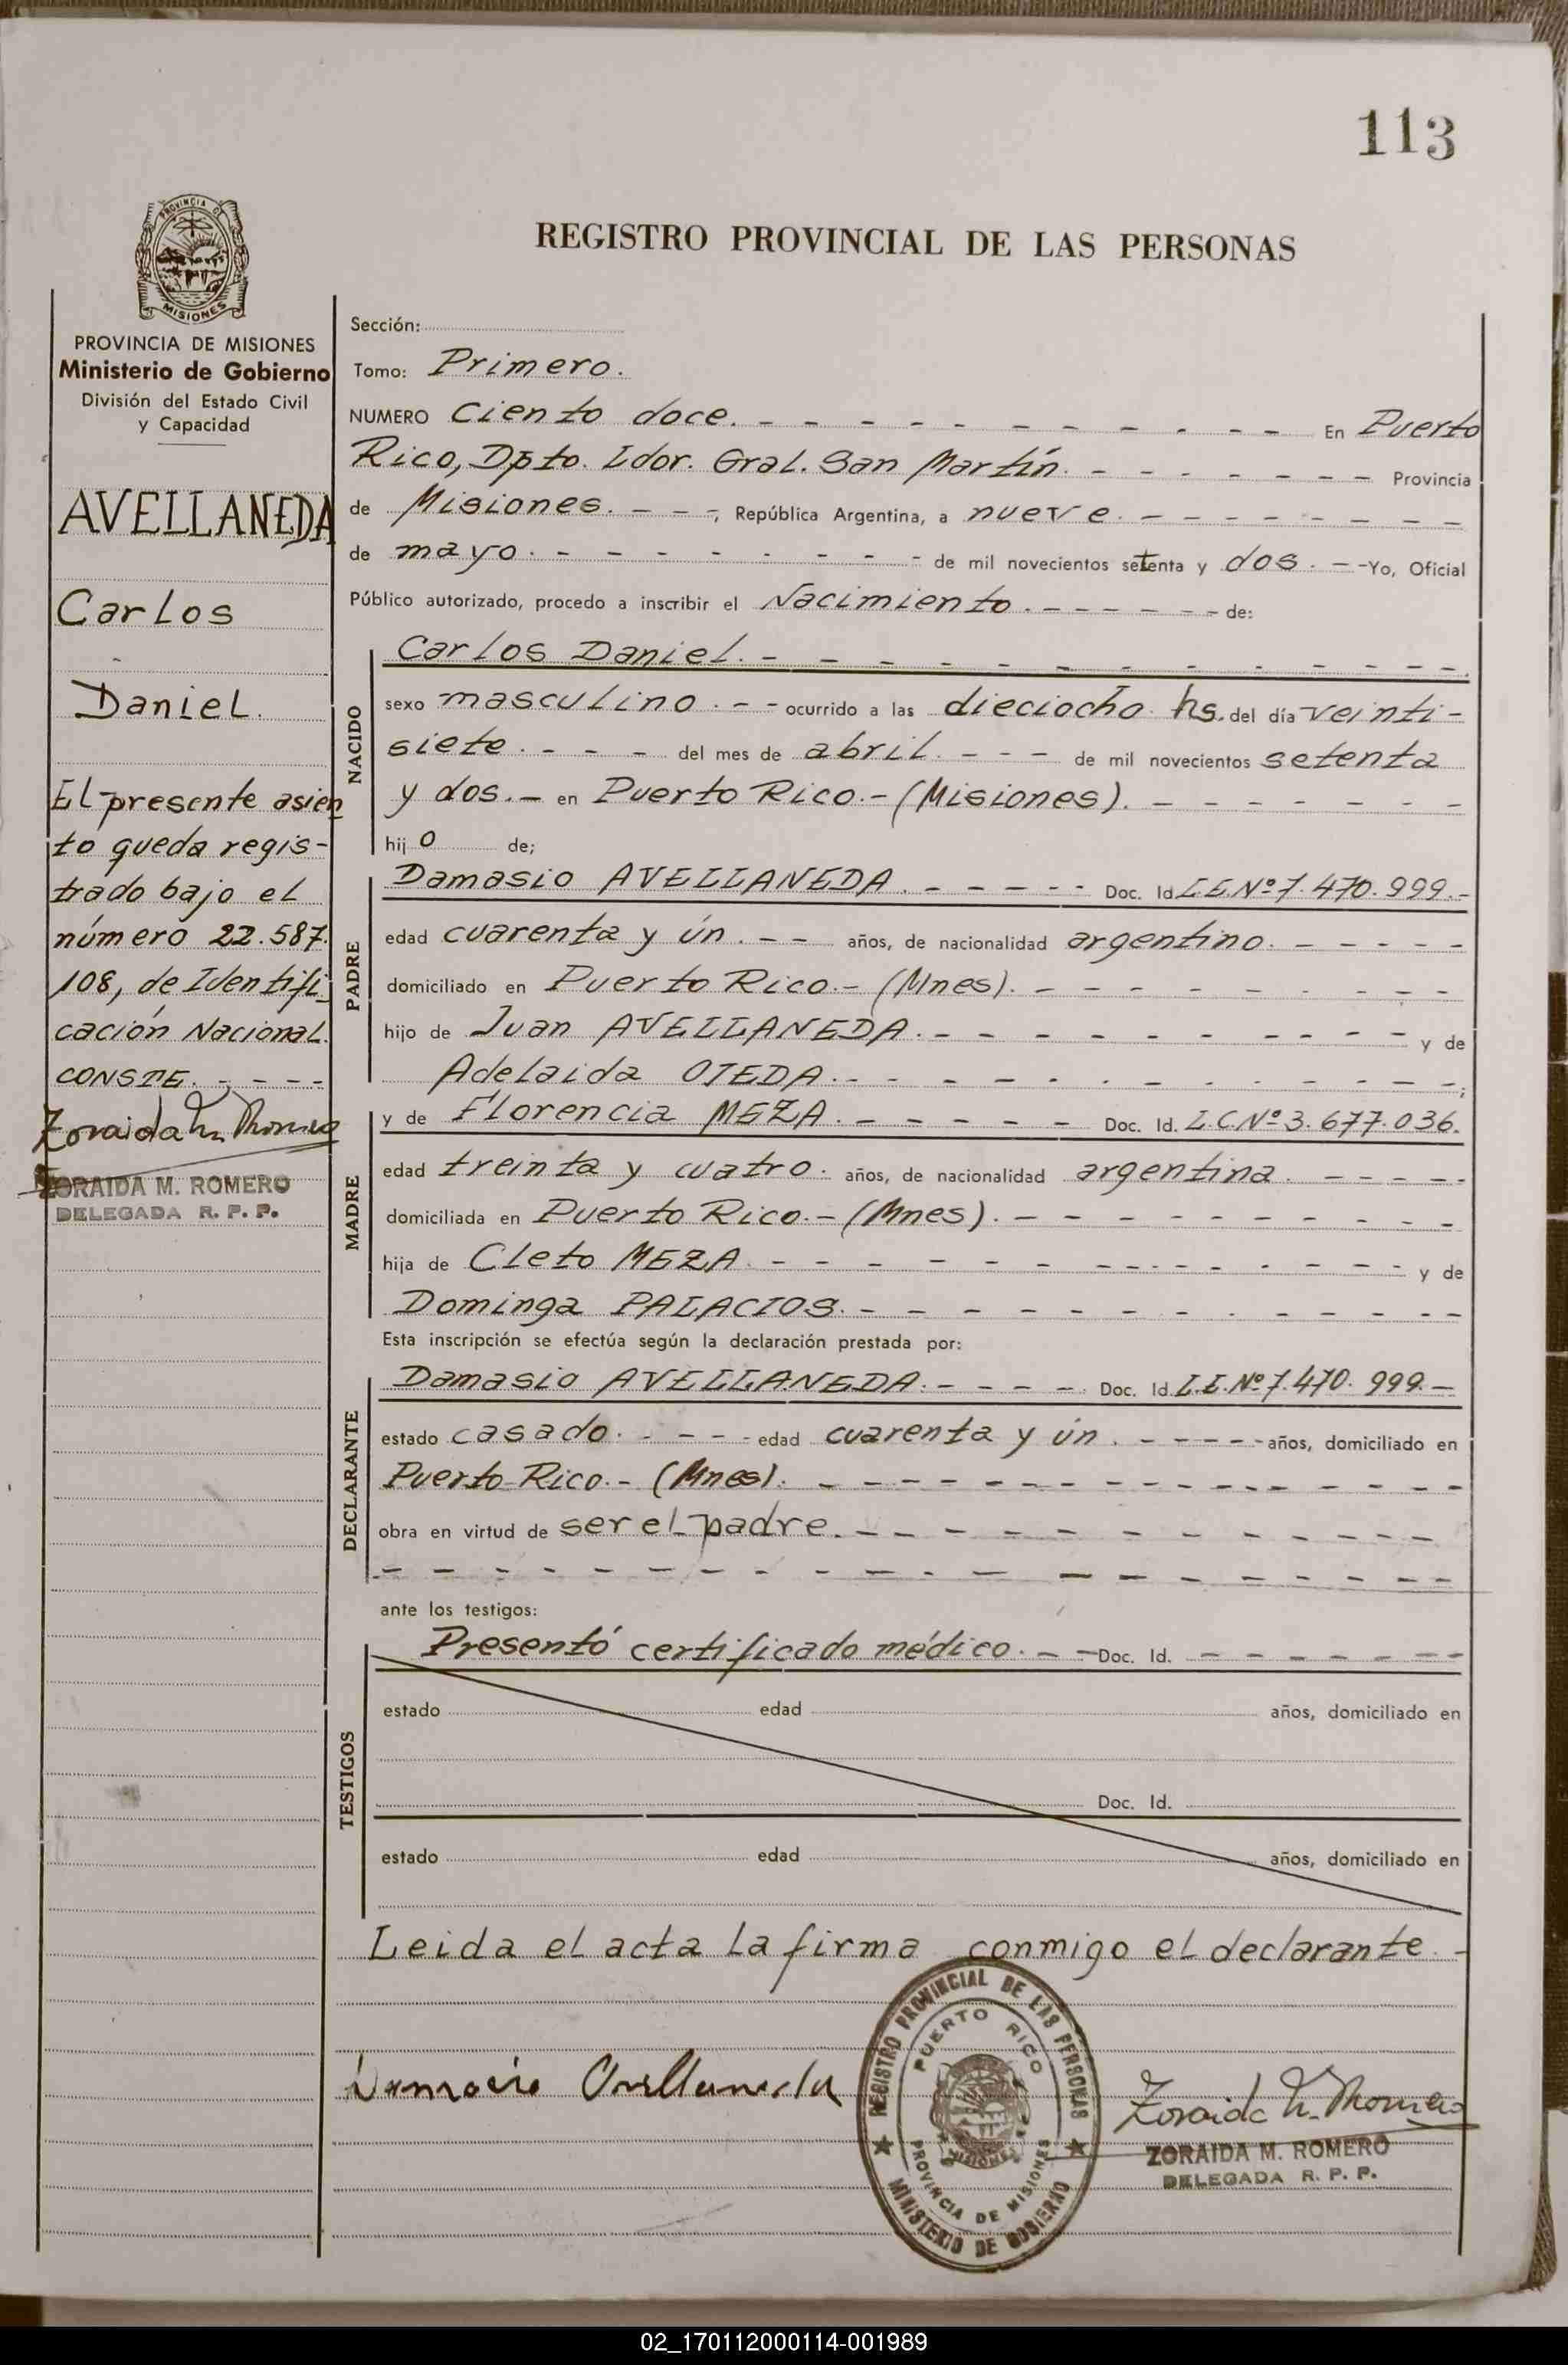 113
REGISTRO PROVINCIAL DE LAS PERSONAS
PROVINCIA DE
MISIONES
PROVINCIA DE MISIONES
Ministerio de Gobierno
División del Estado Civil
y Capacidad
AVELLANEDA
Carlos
Daniel.
El presente asien
to queda regis-
trado bajo el
número 22.587.
108, de Identifi
cación Nacional.
CONSTE. - - - -
Zoraida M. Romero
ZORAIDA M. ROMERO
DELEGADA R. P. P.
Sección:
Tomo: Primero.
NUMERO Ciento doce. - - - - - - - - - - En Puerto
Rico, Dpto. Ldor. Gral. San Martín. - - - - - - Provincia
de Misiones. - - -, República Argentina, a nueve. - - - - - - - -
de mayo. - - - - - - - - de mil novecientos setenta y dos. - -Yo, Oficial
Público autorizado, procedo a inscribir el Nacimiento. - - - - - - - de:
NACIDO
Carlos Daniel. - - - - - - - - - - - - -
sexo masculino. - - ocurrido a las dieciocho hs. del día veinti-
siete. - - - - del mes de abril. - - - de mil novecientos setenta
y dos. - en Puerto Rico. - (Misiones). - - - - - - -
hijo de;
PADRE
Damasio AVELLANEDA. - - - - - Doc. Id. L.E. Nº 7.470.999.-
edad cuarenta y ún. - - años, de nacionalidad argentino. - - - - -
domiciliado en Puerto Rico. - (Mnes). - - - - - - - - -
hijo de Juan AVELLANEDA. - - - - - - - - - - y de
Adelaida OJEDA. - - - - - - - - - - - - -;
MADRE
y de Florencia MEZA. - - - - - Doc. Id. L.C. Nº 3.677.036.
edad treinta y cuatro. años, de nacionalidad argentina. - - - - -
domiciliada en Puerto Rico. - (Mnes). - - - - - - - - -
hija de Cleto MEZA. - - - - - - - - - - - - - y de
Dominga PALACIOS. - - - - - - - - - - - -
Esta inscripción se efectúa según la declaración prestada por:
DECLARANTE
Damasio AVELLANEDA. - - - - - Doc. Id. L.E. Nº 7.470.999.-
estado casado. - - - - edad cuarenta y ún. - - - - - años, domiciliado en
Puerto Rico. - (Mnes). - - - - - - - - - - - - -
obra en virtud de ser el padre. - - - - - - - - - - - -
- - - - - - - - - - - - - - - - - - - -
ante los testigos:
TESTIGOS
Presentó certificado médico. - - Doc. Id. - - - - - - -
estado edad años, domiciliado en
Doc. Id.
estado edad años, domiciliado en
Leida el acta la firma conmigo el declarante. -
Damasio Avellaneda
REGISTRO PROVINCIAL DE LAS PERSONAS
PUERTO RICO
MISIONES
PROVINCIA DE MISIONES
MINISTERIO DE GOBIERNO
Zoraida M. Romero
ZORAIDA M. ROMERO
DELEGADA R. P. P.
02_170112000114-001989